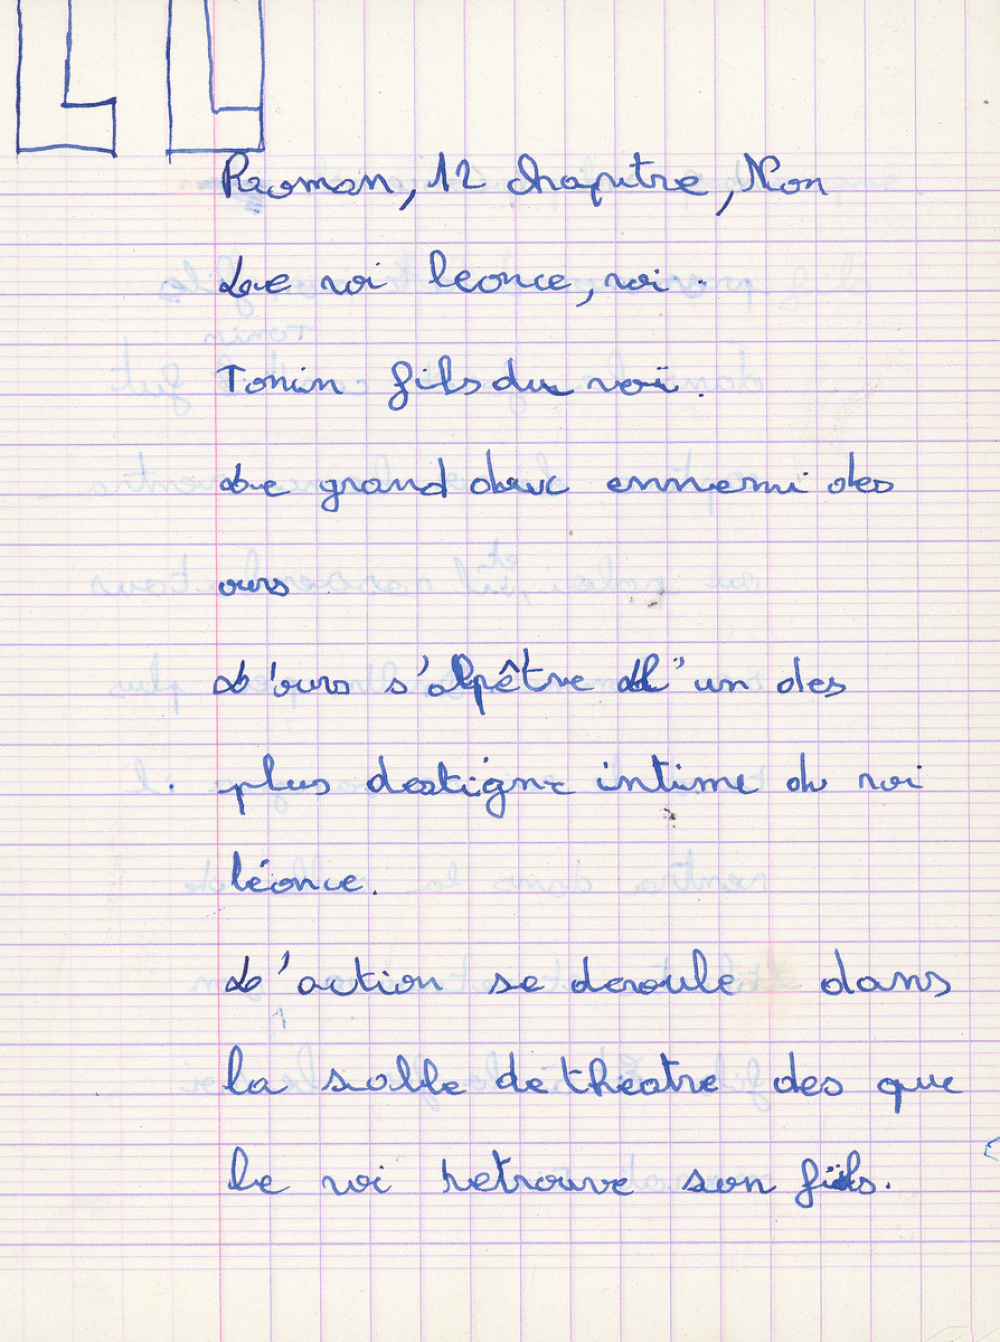 Roman, 12 chapitre, Non
Le roi leonce, roi.
Tonin fils du roi.
Le grand duc ennemi des
ours
L'ours s'alpêtre l'un des
plus intime du roi
léonce.
L'action se deroule dans
la salle de theatre des que
le roi retrouve son fils.